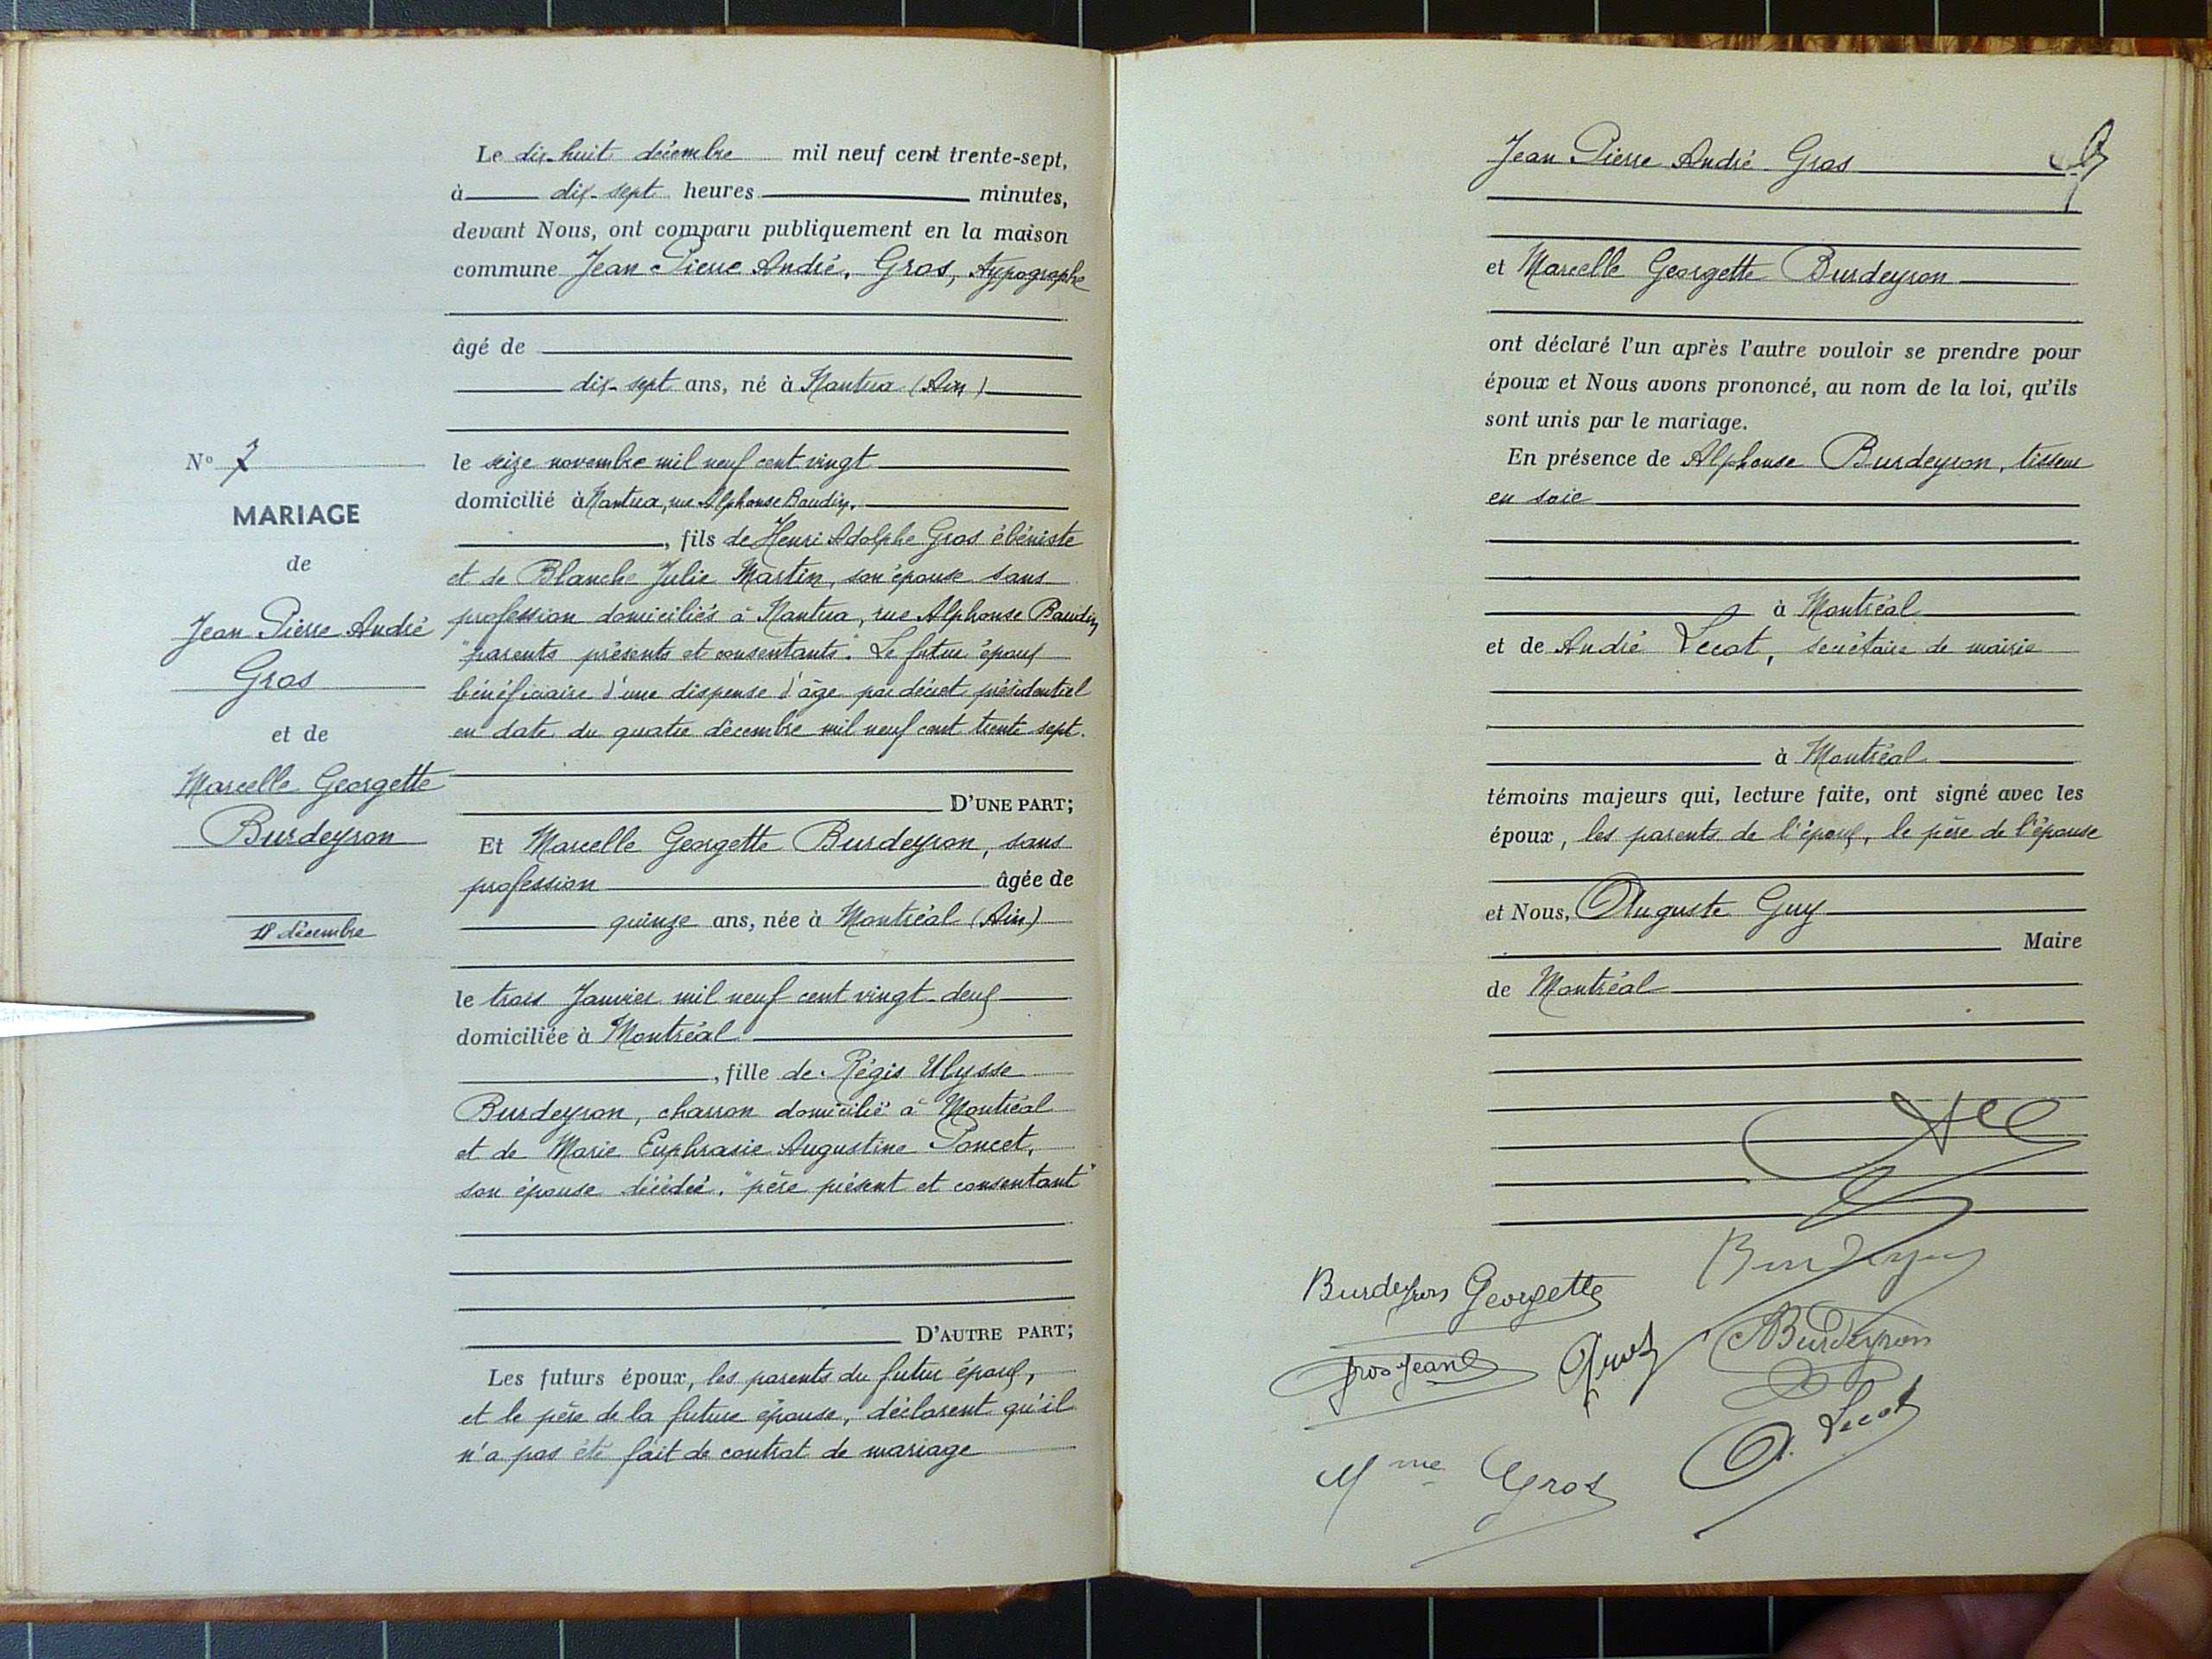 Le dix-huit décembre mil neuf cent trente-sept,
à dix-sept heures minutes,
devant Nous, ont comparu publiquement en la maison
commune Jean Pierre André, Gros, typographe
âgé de
dix-sept ans, né à Nantua (Ain)
le seize novembre mil neuf cent vingt
domicilié à Nantua, rue Alphonse Baudin,
, fils de Henri Adolphe Gros ébéniste
et de Blanche Julie Martin, son épouse sans
profession domiciliés à Nantua, rue Alphonse Baudin,
"parents présents et consentants". Le futur époux
bénéficiaire d'une dispense d'âge par décret présidentiel
en date du quatre décembre mil neuf cent trente sept.
D'UNE PART;
Et Marcelle Georgette Burdeyron, sans
profession âgée de
quinze ans, née à Montréal (Ain)
le trois Janvier mil neuf cent vingt-deux
domiciliée à Montréal
, fille de Régis Ulysse
Burdeyron, charron domicilié à Montréal
et de Marie Euphrasie Augustine Poncet,
son épouse décédée. "père présent et consentant"
D'AUTRE PART;
Les futurs époux, les parents du futur époux,
et le père de la future épouse, déclarent qu'il
n'a pas été fait de contrat de mariage
N° 7
MARIAGE
de
Jean Pierre André
Gros
et de
Marcelle Georgette
Burdeyron
18 décembre
Jean Pierre André Gros
et Marcelle Georgette Burdeyron
ont déclaré l'un après l'autre vouloir se prendre pour
époux et Nous avons prononcé, au nom de la loi, qu'ils
sont unis par le mariage.
En présence de Alphonse Burdeyron, tisseur
en soie
à Montréal
et de André Lecot, secrétaire de mairie
à Montréal
témoins majeurs qui, lecture faite, ont signé avec les
époux, les parents de l'époux, le père de l'épouse
et Nous, Auguste Guy
Maire
de Montréal
Burdeyron
Burdeyron Georgette
Burdeyron
Gros Jean
Gros
A. Lecot
Mme Gros